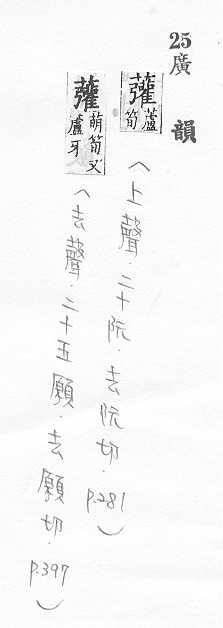 25廣韻
虇蘆筍
(上聲.二十阮.去阮切.p.281)
虇萌筍又蘆牙
(去聲.二十五願.去願切.p.397)